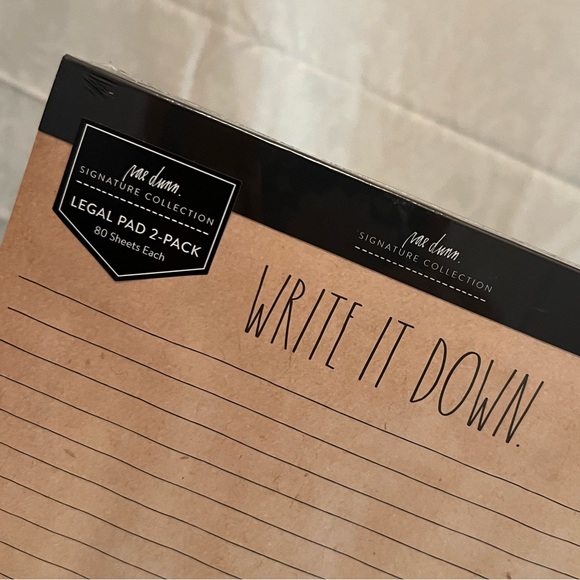 rae dunn.
SIGNATURE COLLECTION
LEGAL PAD 2-PACK
80 Sheets Each
rae dunn.
SIGNATURE COLLECTION
WRITE IT DOWN.